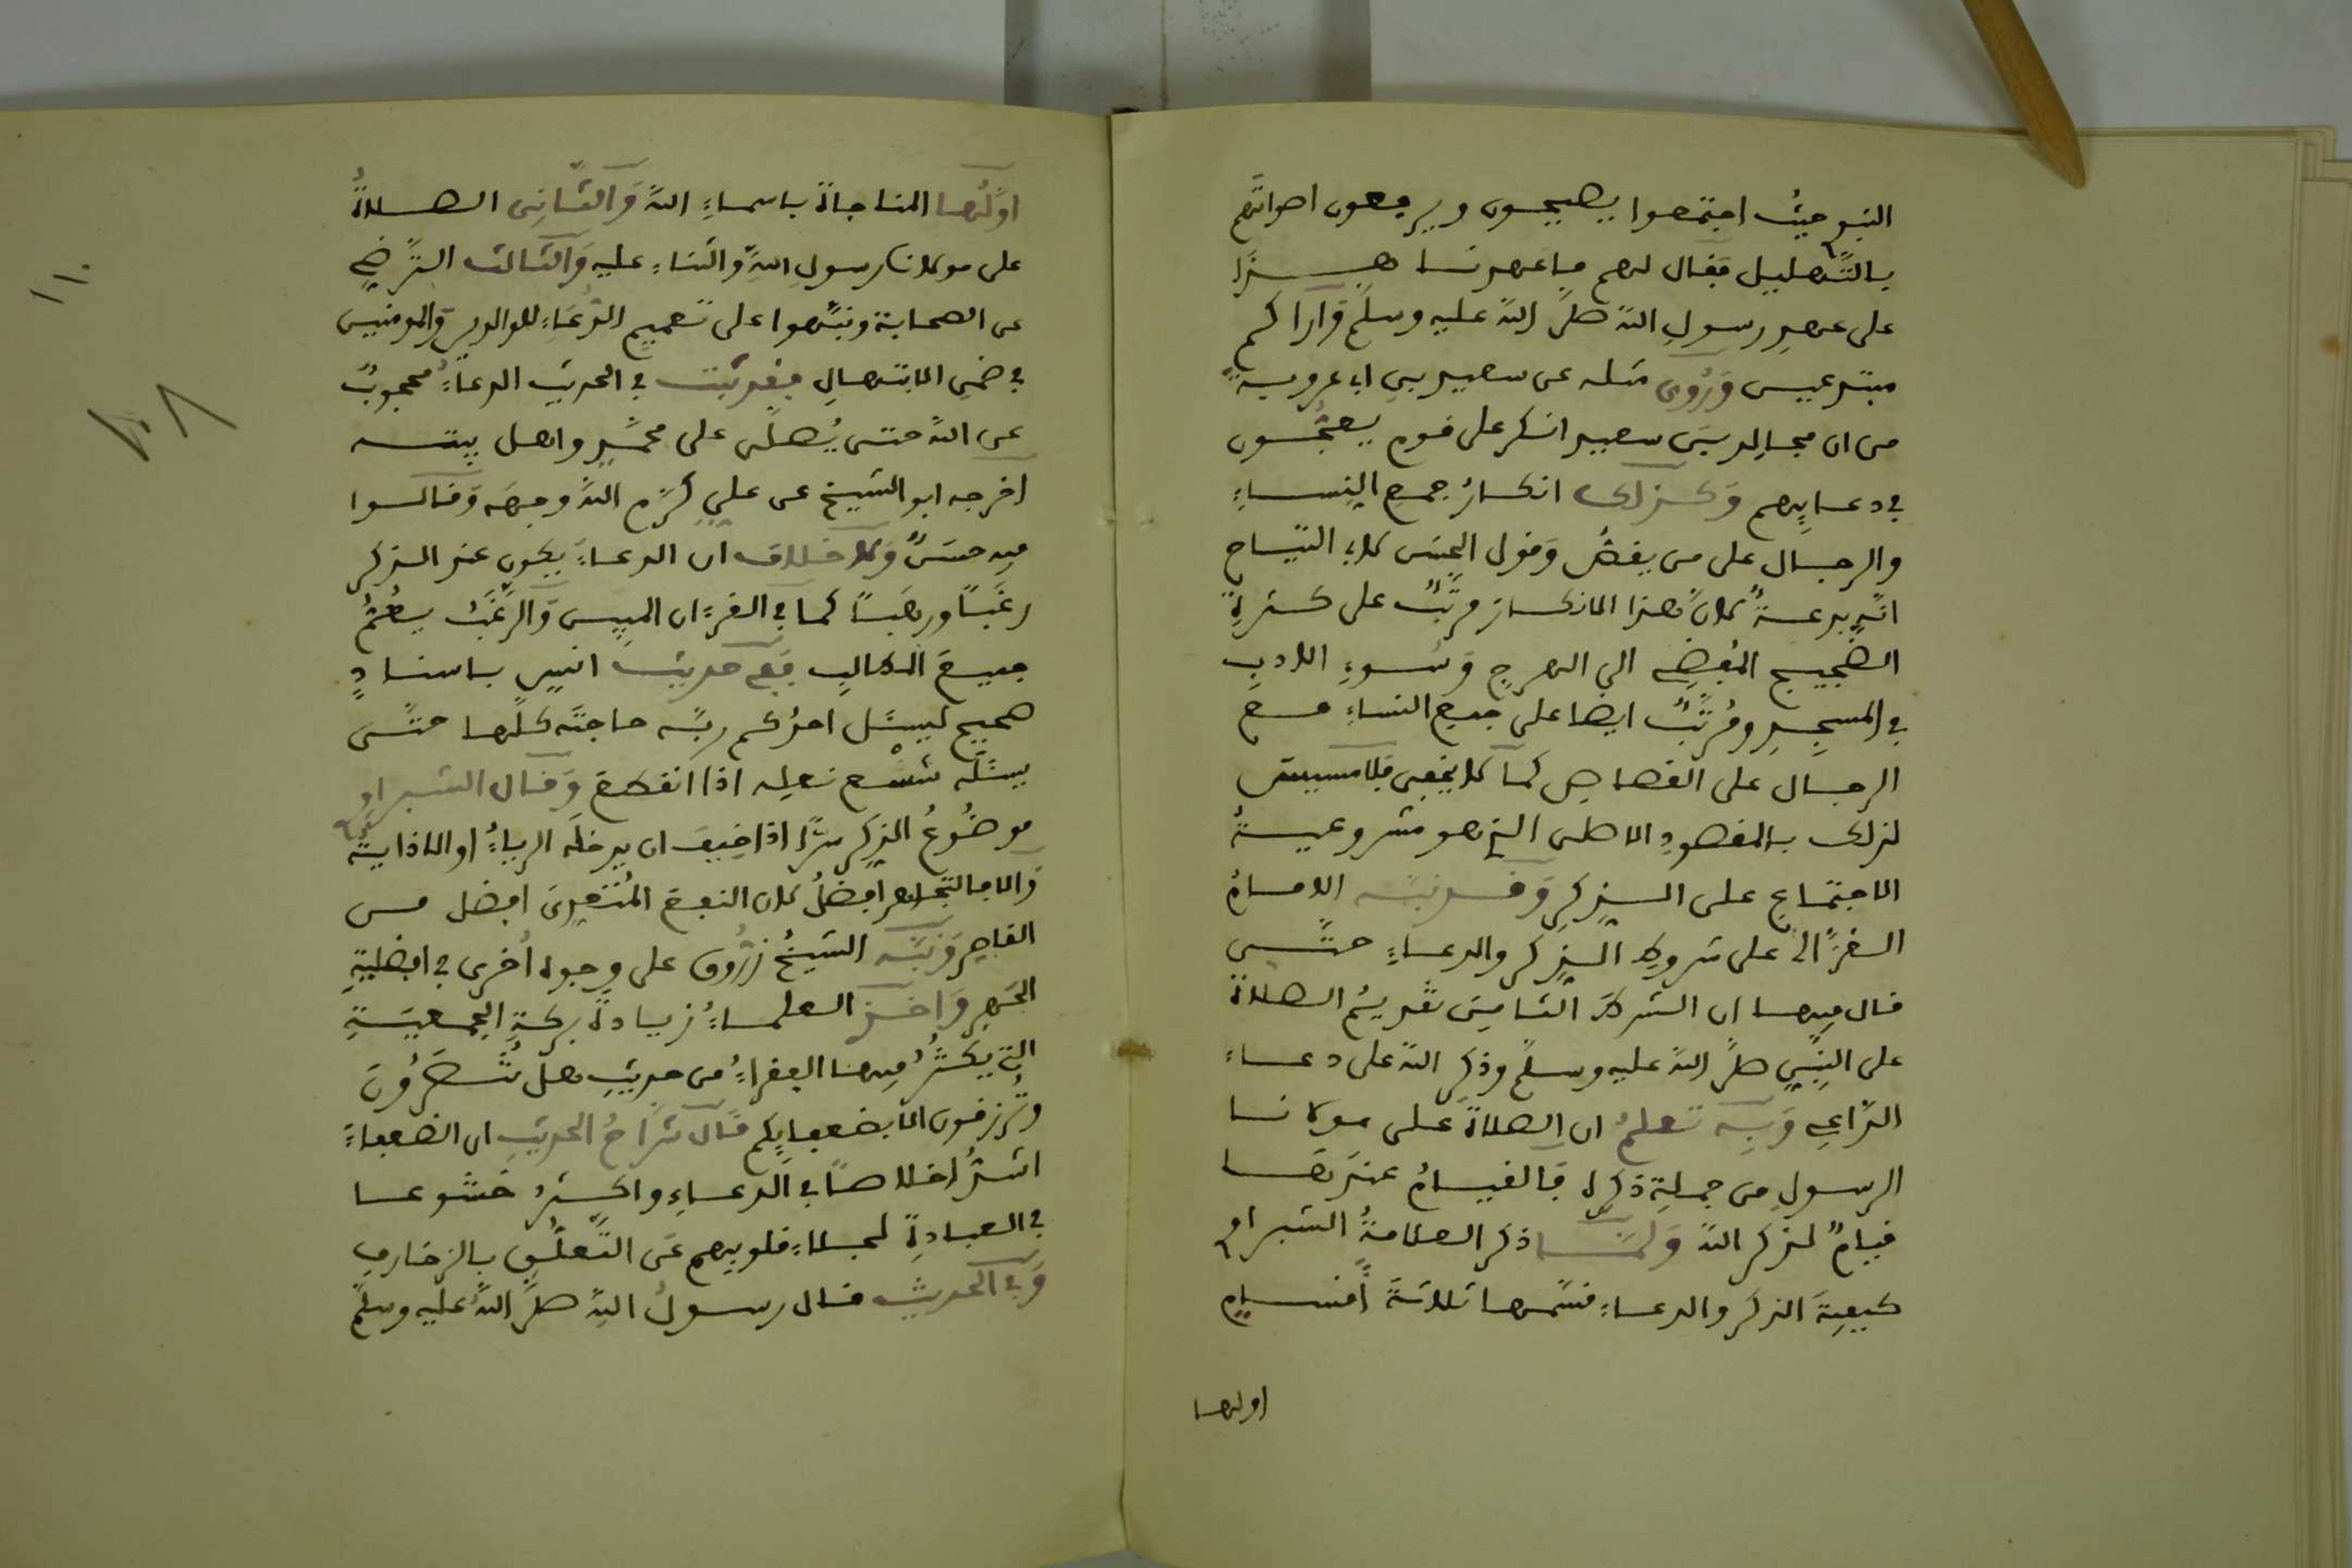 النبو حيث اجتمعوا يصيحون ويرفعون اصواتهم
بالتهليل فقال لهم ما عهدنا هذا
على عهد رسول الله صلى الله عليه وسلم واراكم
مبتدعين وروى مثله عن سعيد بن ابي عروبة
من ان مجالد بن سعيد انكر على قوم يعجّون
في دعايهم وكذلك انكار جمع النساء
والرجال على من يقص وقول الحسن لابي التياح
انه بدعة لان هذا الانكار مرتب على كثرة
الضجيج المفضي الى الهرج وسوء الادب
في المسجد ومرتب ايضا على جمع النساء مع
الرجال على القصاص كما لا يخفى فلا مسيس
لذلك بالمقصود الاصلى الذي هو مشروعية
الاجتماع على الذكر وقد نبه الامام
الغزالي على شروط الذكر والدعاء حتى
قال فيها ان الشرط الثامن تقديم الصلاة
على النبي صلى الله عليه وسلم وذكر الله على دعاء
الداعي وبه تعلم ان الصلاة على مولانا
الرسول من جملة ذكره فالقيام عندها
قيام لذكر الله ولما ذكر العلامة الشبراوي
كيفية الذكر والدعاء قسمها ثلاثة اقسام
اولها
اولها المناجاة باسماء الله والثاني الصلاة
على مولانا رسول الله والثناء عليه والثالث الترضي
عن الصحابة ونبهوا على تعميم الدعاء للوالدين والمومنين
في ضمن الابتهال فقد ثبت في الحديث الدعاء محجوب
عن الله حتى يصلى على محمد واهل بيته
اخرجه ابو الشيخ عن علي كرم الله وجهه وقالوا
فيه حسن ولا خلاف ان الدعاء يكون عند الذكر
رغبا ورهبا كما في القرءان المبين والرغب يعم
جميع المطالب ففي حديث انس باسناد
صحيح ليسئل احدكم ربه حاجته كلها حتى
يسئله شسع نعله اذا انقطع وقال الشبراوي
موضوع الذكر سرا اذا خيف ان يدخله الرياء او الاذاية
والا فالتجاهر افضل لان النفع المتعدى افضل من
القاصر ونبه الشيخ زروق على وجوه اخرى في افضلية
الجهر واخذ العلماء زيادة بركة الجمعية
التي يكثر فيها الفقراء من حديث هل تنصرون
وترزقون الا بضعفايكم قال شراح الحديث ان الضعفاء
اشد اخلاصا في الدعاء واكثر خشوعا
في العبادة لجلاء قلوبهم عن التعلق بالزخارف
وفي الحديث قال رسول الله صلى الله عليه وسلم